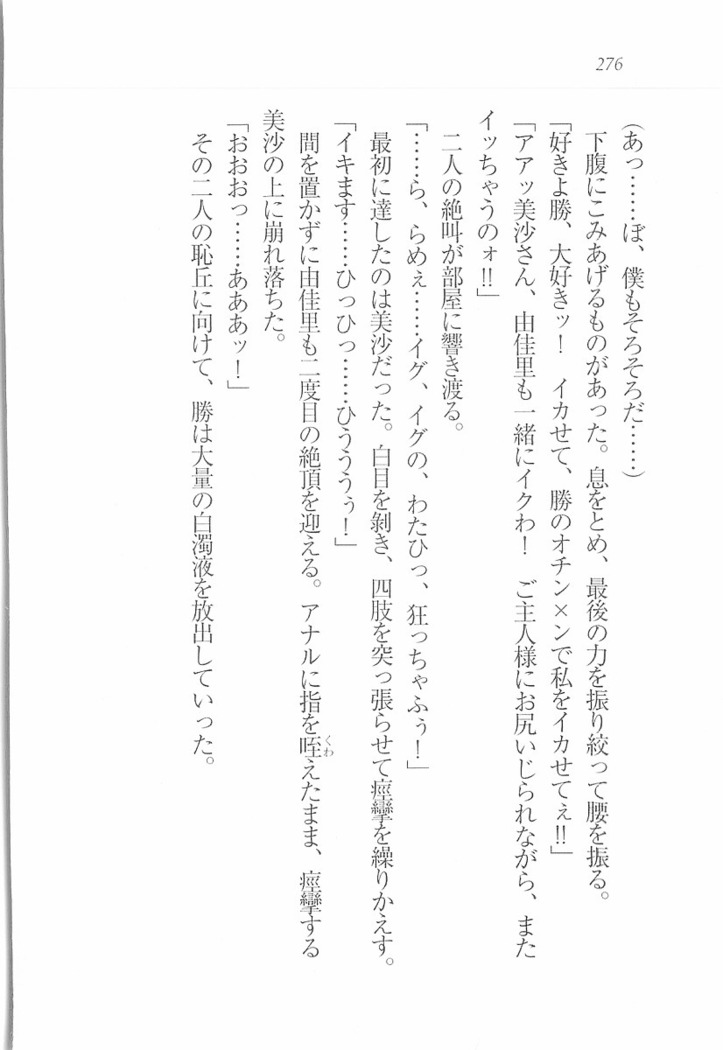 276
(あっ……ぼ、僕もそろそろだ……)
下腹にこみあげるものがあった。息をとめ、最後の力を振り絞って腰を振る。
「好きよ勝、大好きッ！　イカせて、勝のオチン×ンで私をイカせてぇ!!」
「アアッ美沙さん、由佳里も一緒にイクわ！　ご主人様にお尻いじられながら、また
イッちゃうのォ!!」
二人の絶叫が部屋に響き渡る。
「……ら、らめぇ……イグ、イグの、わたひっ、狂っちゃふぅ！」
最初に達したのは美沙だった。白目を剝き、四肢を突っ張らせて痙攣を繰りかえす。
「イキます……ひっひっ……ひうううぅ！」
間を置かずに由佳里も二度目の絶頂を迎える。アナルに指を咥えたまま、痙攣する
くわ
美沙の上に崩れ落ちた。
「おおおっ……あああッ！」
その二人の恥丘に向けて、勝は大量の白濁液を放出していった。